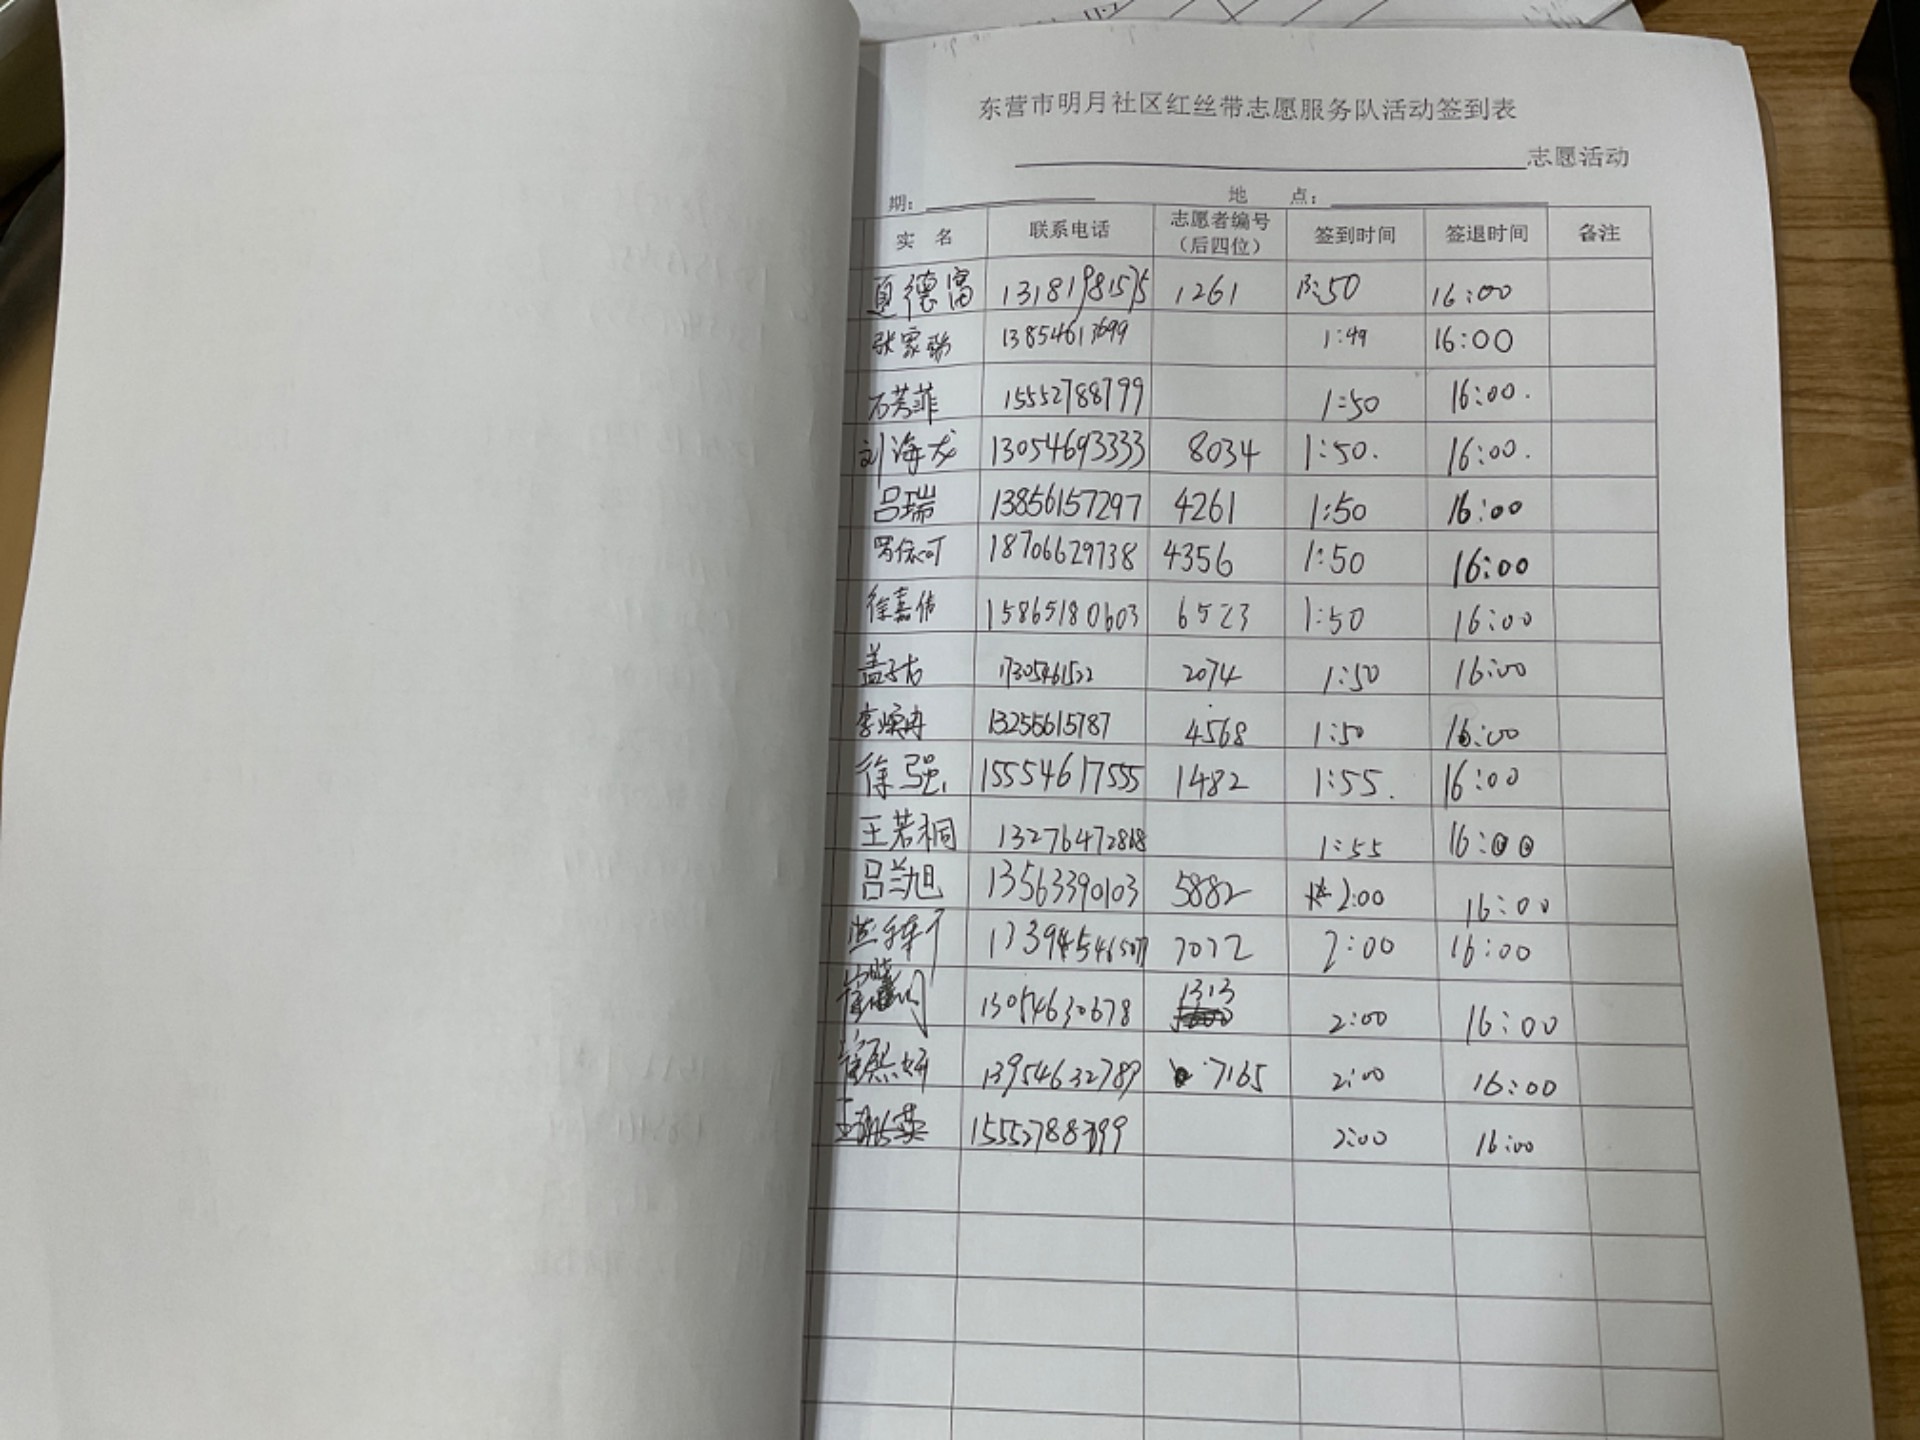 东营市明月社区红丝带志愿服务队活动签到表
志愿活动
期： 地 点：
实 名 联系电话 志愿者编号（后四位） 签到时间 签退时间 备注
夏德富 13181981575 1261 13:50 16:00
张家瑞 13854613699 1:49 16:00
石芳菲 15552788799 1:50 16:00.
刘海龙 13054693333 8034 1:50. 16:00.
吕瑞 13856157297 4261 1:50 16:00
罗依可 18706629738 4356 1:50 16:00
徐嘉倩 15865180603 6523 1:50 16:00
盖子 17305461522 2074 1:50 16:00
李 13255615787 4568 1:50 16:00
徐强 15554617555 1482 1:55. 16:00
王若桐 13276472868 1:55 16:00
吕兰旭 13563390103 5882 2:00 16:00
7072 2:00 16:00
13054630678 1313 2:00 16:00
13954632789 7165 2:00 16:00
王 15552788799 2:00 16:00